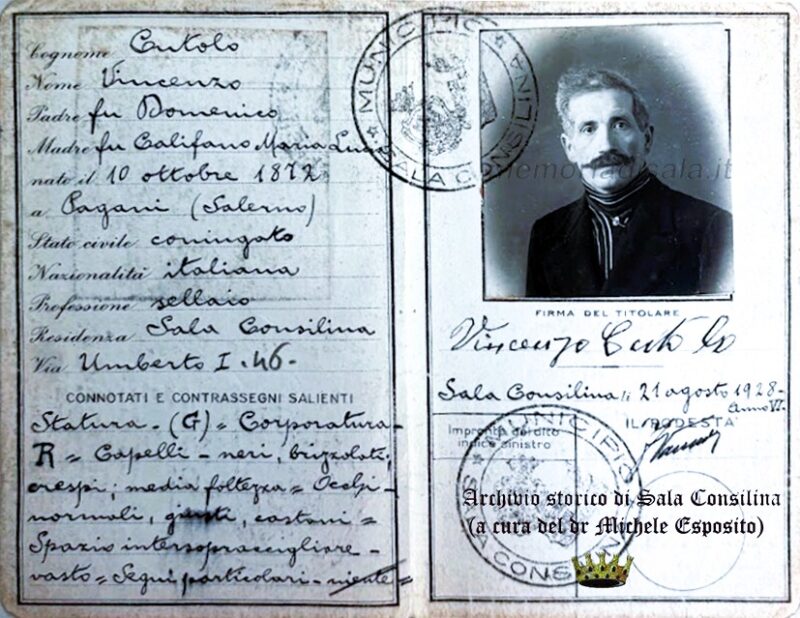 Cognome Cutolo
Nome Vincenzo
Padre fu Domenico
Madre fu Califano Maria Luisa
nato il 10 ottobre 1872
a Pagani (Salerno)
Stato civile coniugato
Nazionalità italiana
Professione sellaio
Residenza Sala Consilina
Via Umberto I. 46-
CONNOTATI E CONTRASSEGNI SALIENTI
Statura - (G) = Corporatura -
R = Capelli - neri, brizzolati,
crespi; media foltezza = Occhi -
normali, giusti, castani =
Spazio intersopraccigliare -
vasto = Segni particolari - niente =
MUNICIPIO
SALA CONSILINA
memoriadisala.it
FIRMA DEL TITOLARE
Vincenzo Cutolo
Sala Consilina, li 21 agosto 1928 -
Anno VI.
IL PODESTA'
Impronta del dito
indice sinistro
MUNICIPIO
SALA CONSILINA
Archivio storico di Sala Consilina
(a cura del dr Michele Esposito)